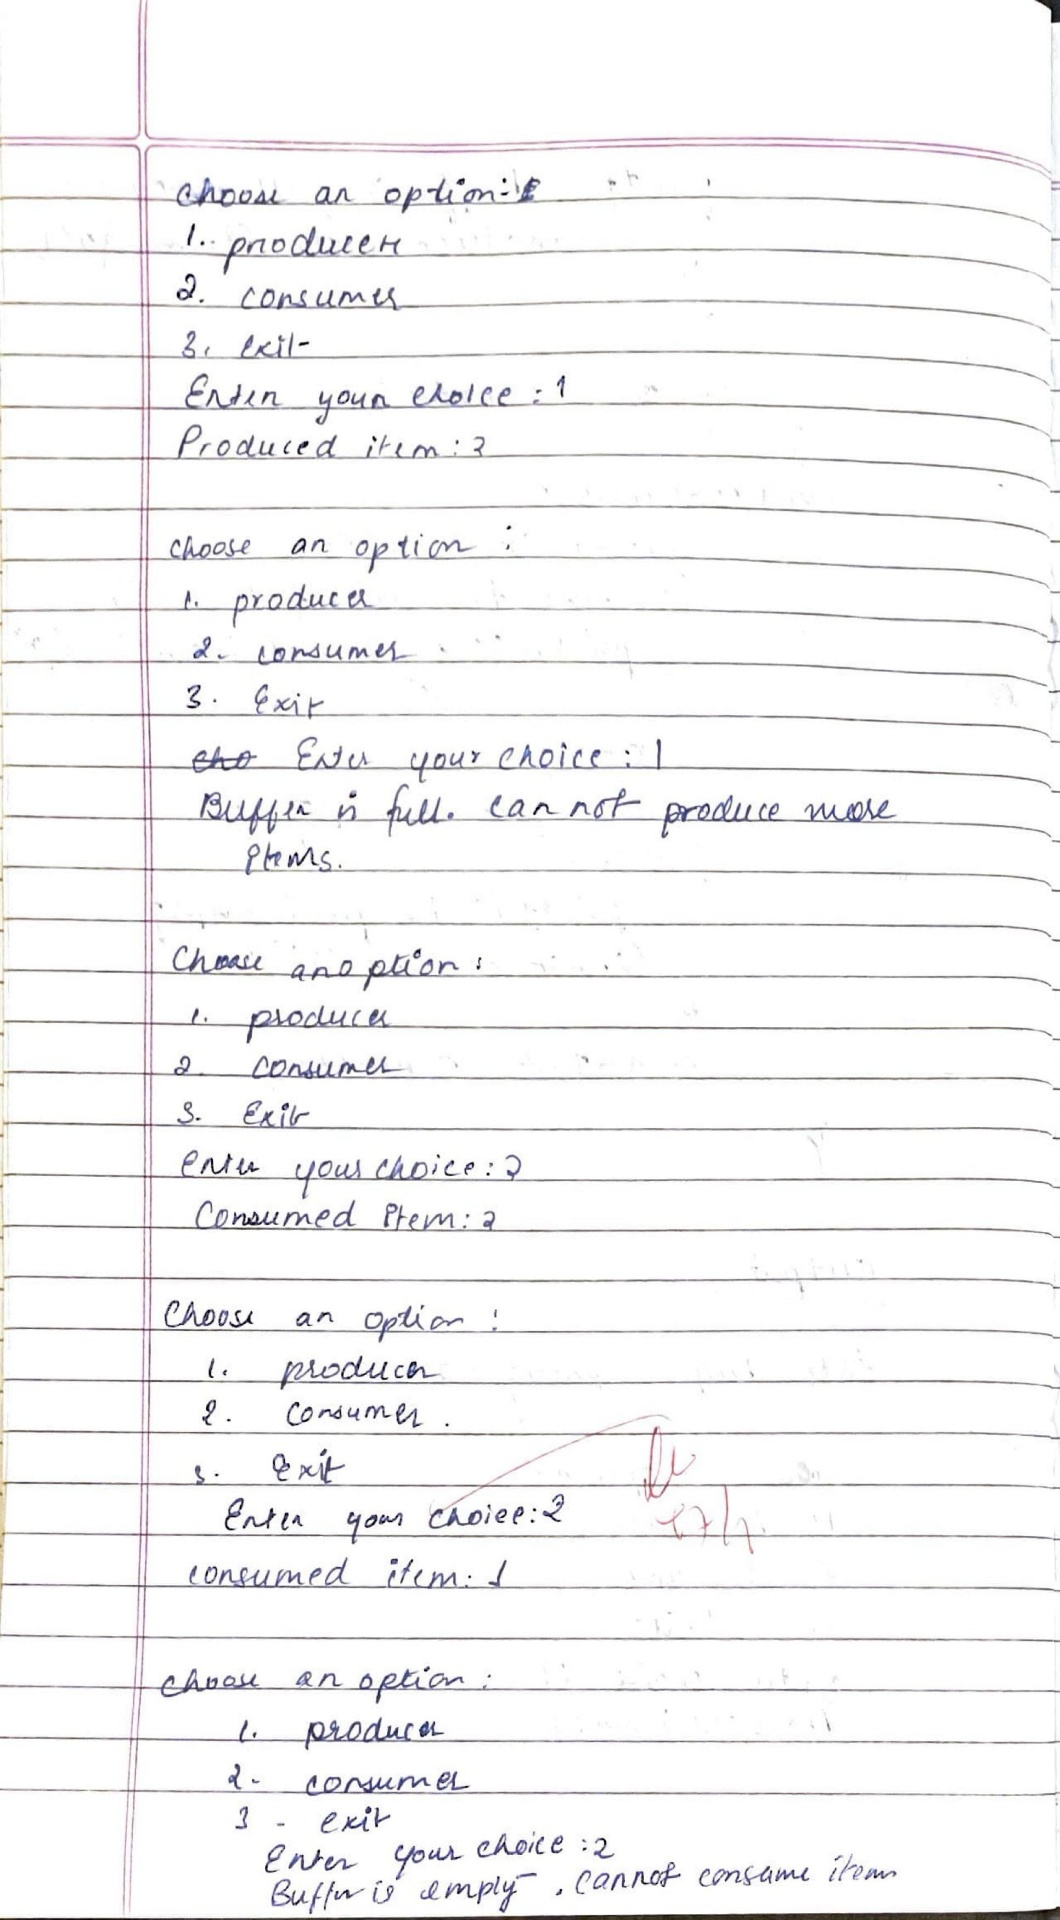 choose an option:
1. producer
2. consumer
3. exit
Enter your choice : 1
Produced item : 2

choose an option :
1. producer
2. consumer
3. Exit
Enter your choice : 1
Buffer is full. can not produce more
items.

Choose an option :
1. producer
2. consumer
3. Exit
enter your choice : 2
Consumed item : 2

Choose an option :
1. producer
2. consumer.
3. Exit
Enter your choice : 2
consumed item : 1

choose an option :
1. producer
2. consumer
3 - exit
Enter your choice : 2
Buffer is empty. cannot consume item